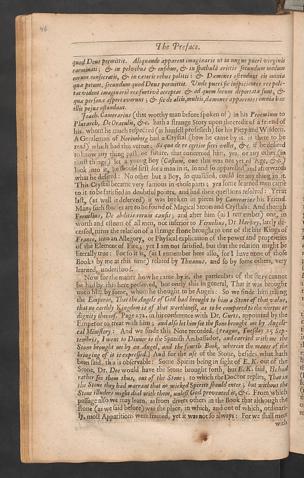 The Preface.
quod Deus permittit. Aliquando apparent imaginariè ut in ungue pueri virginis
carminati; & in pelvibus & ensibus, & in spathulâ
& in cæteris rebus politis: & Dæmones ostendunt eis omnia
quæ petunt, secundum quod Deus permittit. Unde pueri sic inspicientes res poli-
tas vident imaginariè res furtivè acceptas & ad quem locum asportatæ sunt, &
quæ personæ asportaverunt; & sic de aliis, multis, dæmones apparentes omnia hæc
illis
Joach. Camerarius (that worthy man before spoken of) in his Proœmium to
Plutarch, De Oraculis, &c. hath a strange Story upon the credit of a friend of
his, whom he much respected (as himself professeth) for his Piety and Wisdom.
A Gentleman of Norimberg had a Crystal (how he came by it, is there to be
read) which had this vertue, Si quâ de re certior fieri vellet, &c. if he desired
to know any thing past or future, that concerned him, yea, or any other (in
most things) let a young boy (Castum, one that was not yet of Age, &c.)
look into it, he should first see a man in it, so and so apparelled and afterwards
what he desired: No other but a Boy, so qualified, could see any thing in it.
This Crystal became very famous in those parts; yea some learned men came
to it to be satisfied in doubtful points, and had their questions resolved: Yet at
last, (as well it deserved) it was broken in pieces by Camerarius his Friend.
Many such stories are to be found of Magical Stones and Crystals: And though
Fernelius, De abditis rerum causis; and after him (as I remember) one, in
worth and esteem of all men, not inferior to Fernelius, Dr. Harvey, lately de-
ceased, turns the relation of a strange stone brought to one of the late Kings of
France, into an Allegory, or Physical explication of the power and properties
of the Element of Fire; yet I am not satisfied, but that the relation might be
literally true: For so it is, (as I remember) for I have none of those
Books by me at this time) related by Thuanus, and so by some esteem, very
learned, understood.
Now for the matter how he came by it, the particulars of the story cannot
be had by this here produced, but only this in general, That it was brought
unto him, by some, whom he thought to be Angels: So we finde him telling
the Emperor, That the Angels of God had brought to him a Stone of that value,
that no earthly Kingdom is of that worthiness, as to be compared to the vertue or
dignity thereof. Page 172. in his conference with Dr. Curts, appointed by the
Emperor to treat with him; and also let him see the stone brought me by Angeli-
cal Ministery: And we finde this Note recorded, Prague, Tuesday 25 Sep-
tembris, I went to Dinner to the Spanish Ambassador, and carried with me the
Stone brought me by an Angel, and the fourth Book, wherein the manner of the
bringing of it is expressed. And for the use of the Stone, besides what hath
been said, this is observable: Some Spirits being in sight of E. K. out of the
Stone, Dr. Dee would have the Stone brought forth, but E. K. said, He had
rather see them thus, out of the Stone: to which the Doctor replies, That in
the Stone they had warrant that no wicked Spirits should enter; but without the
Stone illuders might deal with them, unless God prevented it, &c. From which
passage also we may learn, as from divers others in the Book that although the
Stone (as we said before) was the place, in which, and out of which, ordinari-
ly, most Apparitions were framed, yet it was not always: For we shall meet
with